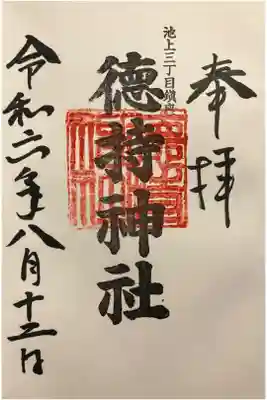 奉拝
池上三丁目鎮座
徳持神社
令和六年八月十二日